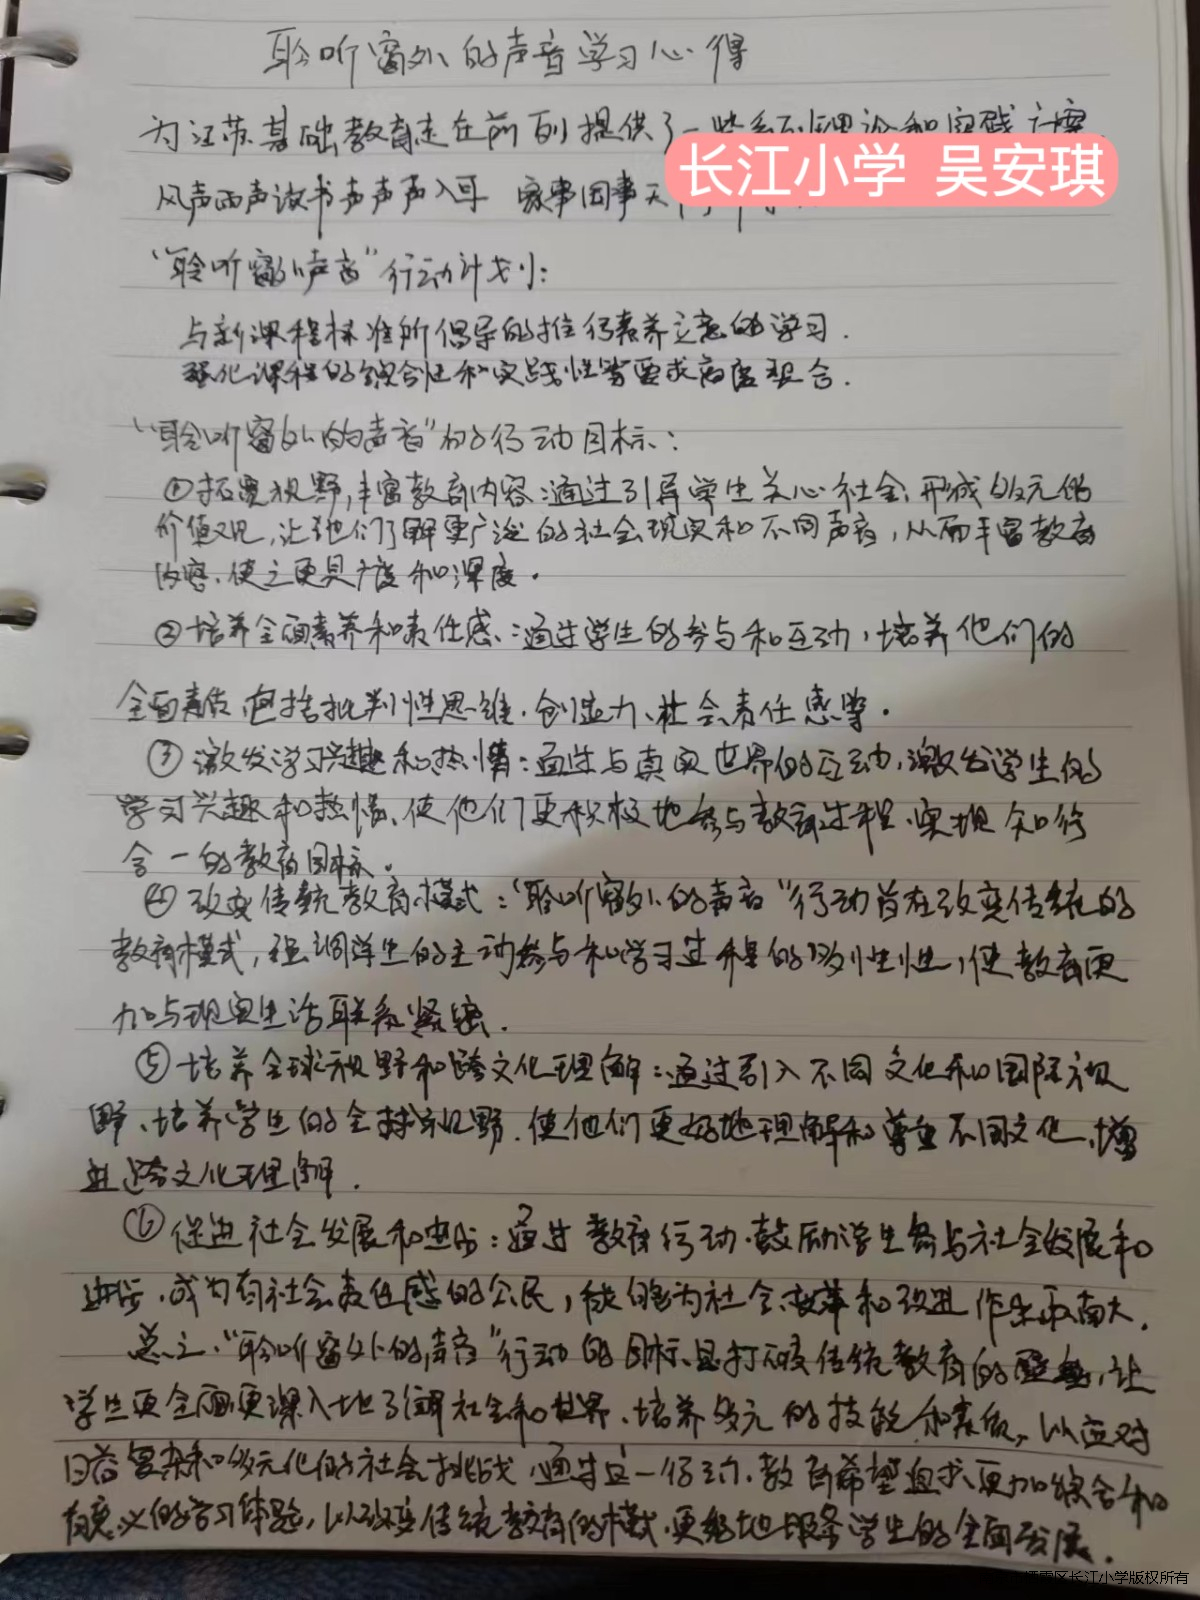 聆听窗外的声音学习心得
为江苏基础教育走在前列提供了一些系列理论和实践方案
长江小学 吴安琪
风声雨声读书声声声入耳 家事国事天下
“聆听窗外声音”行动计划:
与新课程标准所倡导的推行素养立意的学习.
强化课程的综合性和实践性等要求高度契合.
“聆听窗外的声音”的行动目标:
①拓宽视野,丰富教育内容:通过引导学生关心社会,形成多元的
价值观,让他们了解更广泛的社会现实和不同声音,从而丰富教育
内容,使之更具广度和深度.
②培养全面素养和责任感:通过学生的参与和互动,培养他们的
全面素质,包括批判性思维,创造力、社会责任感等.
③激发学习兴趣和热情:通过与真实世界的互动,激发学生的
学习兴趣和热情,使他们更积极地参与教育过程,实现知行
合一的教育目标.
④改变传统教育模式:“聆听窗外的声音”行动旨在改变传统的
教育模式,强调学生的主动参与和学习过程的多样性,使教育更
加与现实生活联系紧密.
⑤培养全球视野和跨文化理解:通过引入不同文化和国际视
野,培养学生的全球视野,使他们更好地理解和尊重不同文化,增
进跨文化理解.
⑥促进社会发展和进步:通过教育行动,鼓励学生参与社会发展和
进步,成为有社会责任感的公民,能够为社会改革和改进作出贡献.
总之,“聆听窗外的声音”行动的目标是打破传统教育的壁垒,让
学生更全面更深入地了解社会和世界,培养多元的技能和素质,以应对
日益复杂和多元化的社会挑战,通过这一行动,教育希望追求更加综合和
有意义的学习体验,以改变传统教育的模式,更好地服务学生的全面发展.
区长江小学版权所有